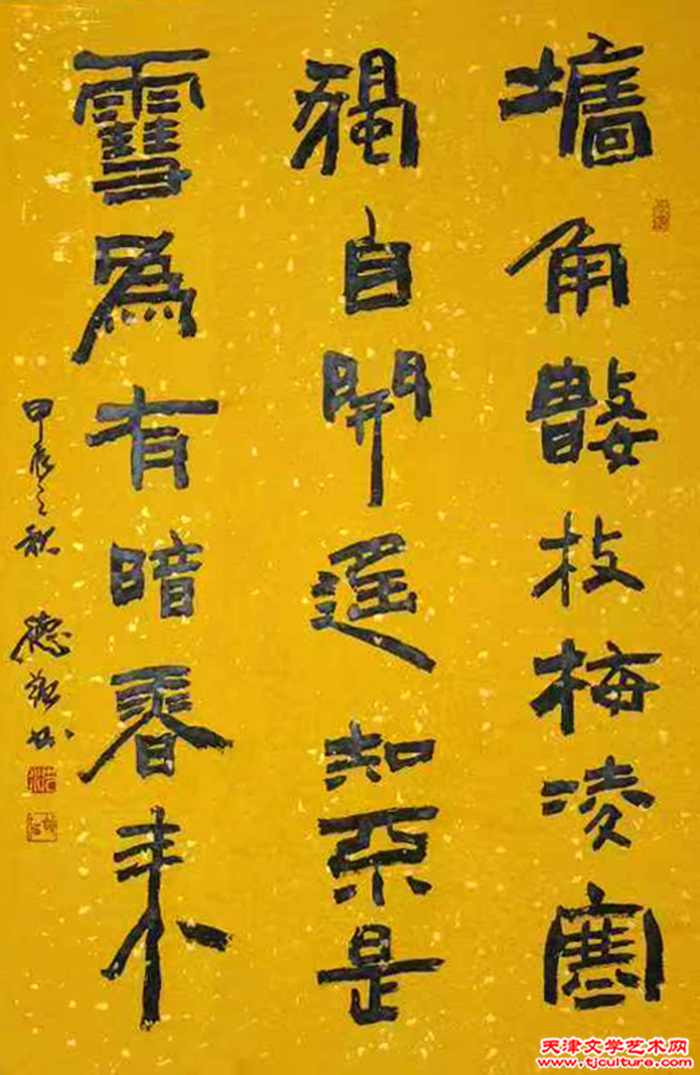 墻角數枝梅凌寒
獨自開遙知不是
雪為有暗香来
甲辰之秋 德书
天津文学艺术网
www.tjculture.com